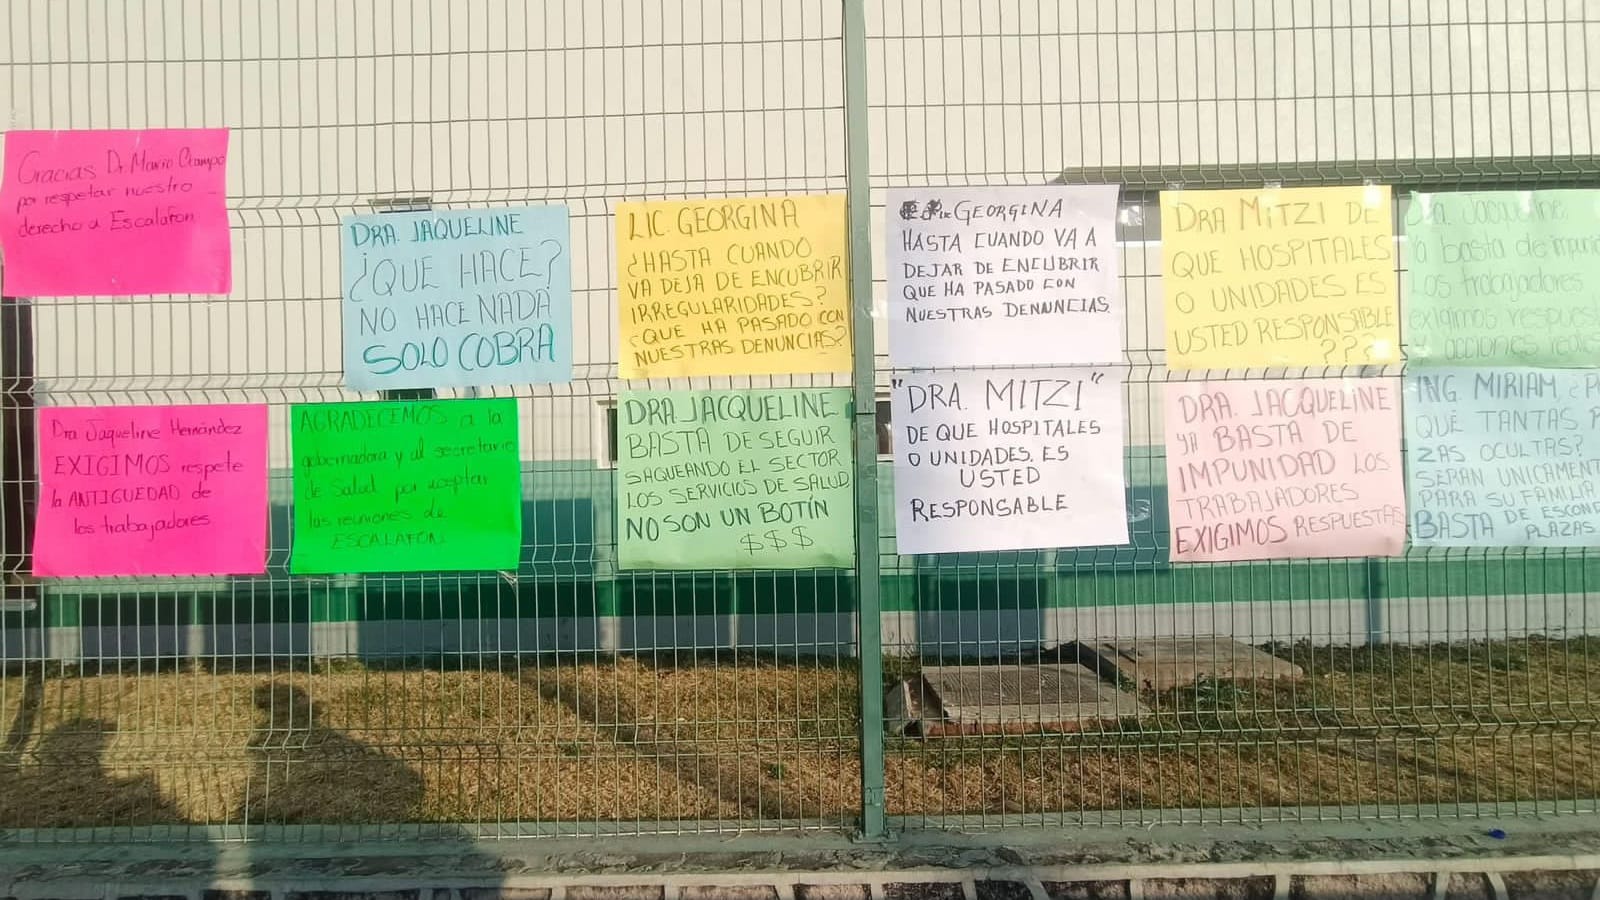 Gracias Dr. Mario Ocampo
por respetar nuestro
derecho a Escalafon
Dra Jaqueline Hernández
EXIGIMOS respete
la ANTIGUEDAD de
los trabajadores
DRA. JAQUELINE
¿QUE HACE?
NO HACE NADA
SOLO COBRA
AGRADECEMOS a la
gobernadora y al secretario
de Salud por aceptar
las reuniones de
ESCALAFON
LIC. GEORGINA
¿HASTA CUANDO
VA DEJA DE ENCUBRIR
IRREGULARIDADES?
¿QUE HA PASADO CON
NUESTRAS DENUNCIAS?
DRA. JACQUELINE
BASTA DE SEGUIR
SAQUEANDO EL SECTOR
LOS SERVICIOS DE SALUD
NO SON UN BOTÍN
$$$
LIC GEORGINA
HASTA CUANDO VA A
DEJAR DE ENCUBRIR
QUE HA PASADO CON
NUESTRAS DENUNCIAS.
"DRA. MITZI"
DE QUE HOSPITALES
O UNIDADES. ES
USTED
RESPONSABLE
DRA MITZI DE
QUE HOSPITALES
O UNIDADES ES
USTED RESPONSABLE
???
DRA. JACQUELINE
YA BASTA DE
IMPUNIDAD LOS
TRABAJADORES
EXIGIMOS RESPUESTAS
Dra. Jacqueline,
Ya basta de impuni
Los trabajadores
exigimos respuest
y acciones reales
ING. MIRIAM, ¿P
QUÉ TANTAS P
ZAS OCULTAS?
SERAN UNICAMENT
PARA SU FAMILIA
BASTA DE ESCOND
PLAZAS